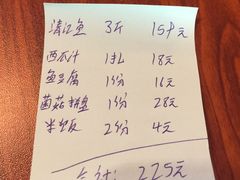 清江鱼 3斤 159元
西瓜汁 1扎 18元
鱼豆腐 1份 16元
菌菇拼盘 1份 28元
米饭 2份 4元
合计: 225元